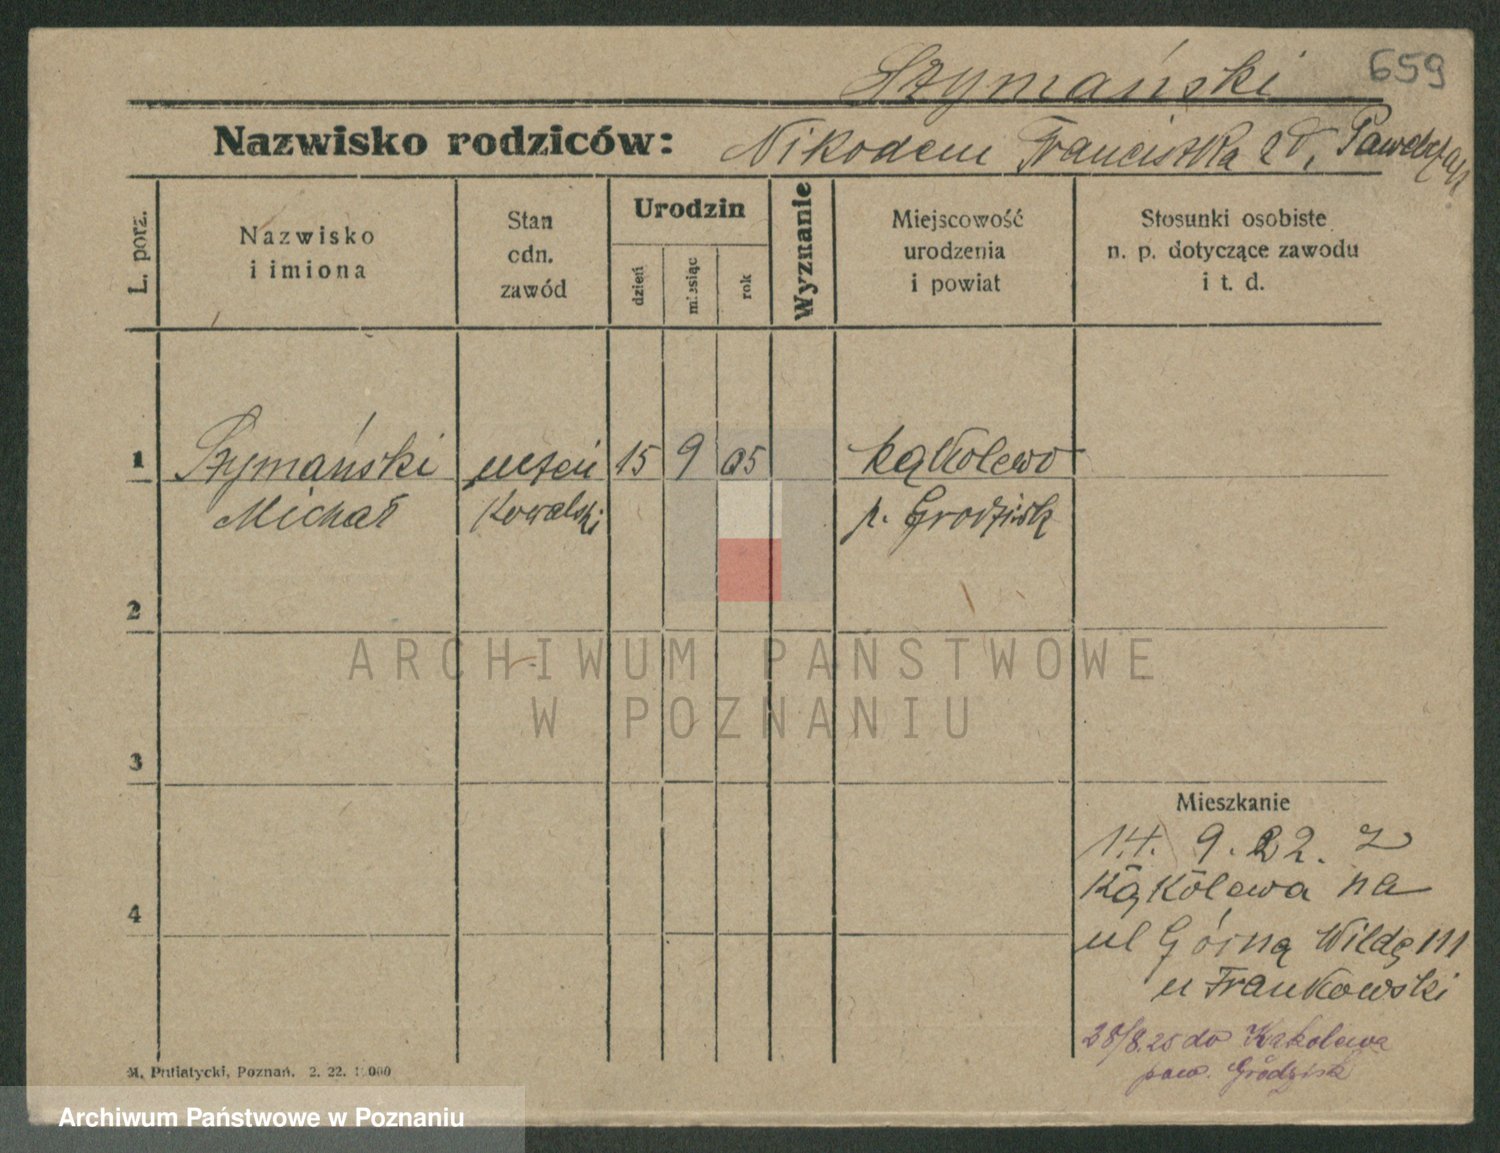 659
Szymański
Nazwisko rodziców: Nikodem Franciszka zd. Pawelczak
L. porz.
Nazwisko
i imiona
Stan
odn.
zawód
Urodzin
dzień
miesiąc
rok
Wyznanie
Miejscowość
urodzenia
i powiat
Stosunki osobiste
n. p. dotyczące zawodu
i t. d.
1 Szymański uczeń 15 9 05 Kąkolewo
Michał Kowalski p. Grodzisk
2
3
Mieszkanie
14. 9. 22. z
Kąkolewa na
4
ul Górną Wildę 111
u Frankowski
28/8.25 do Kąkolewa
pow. Grodzisk
M. Putiatycki, Poznań. 2. 22. 1.000
ARCHIWUM PAŃSTWOWE
W POZNANIU
Archiwum Państwowe w Poznaniu